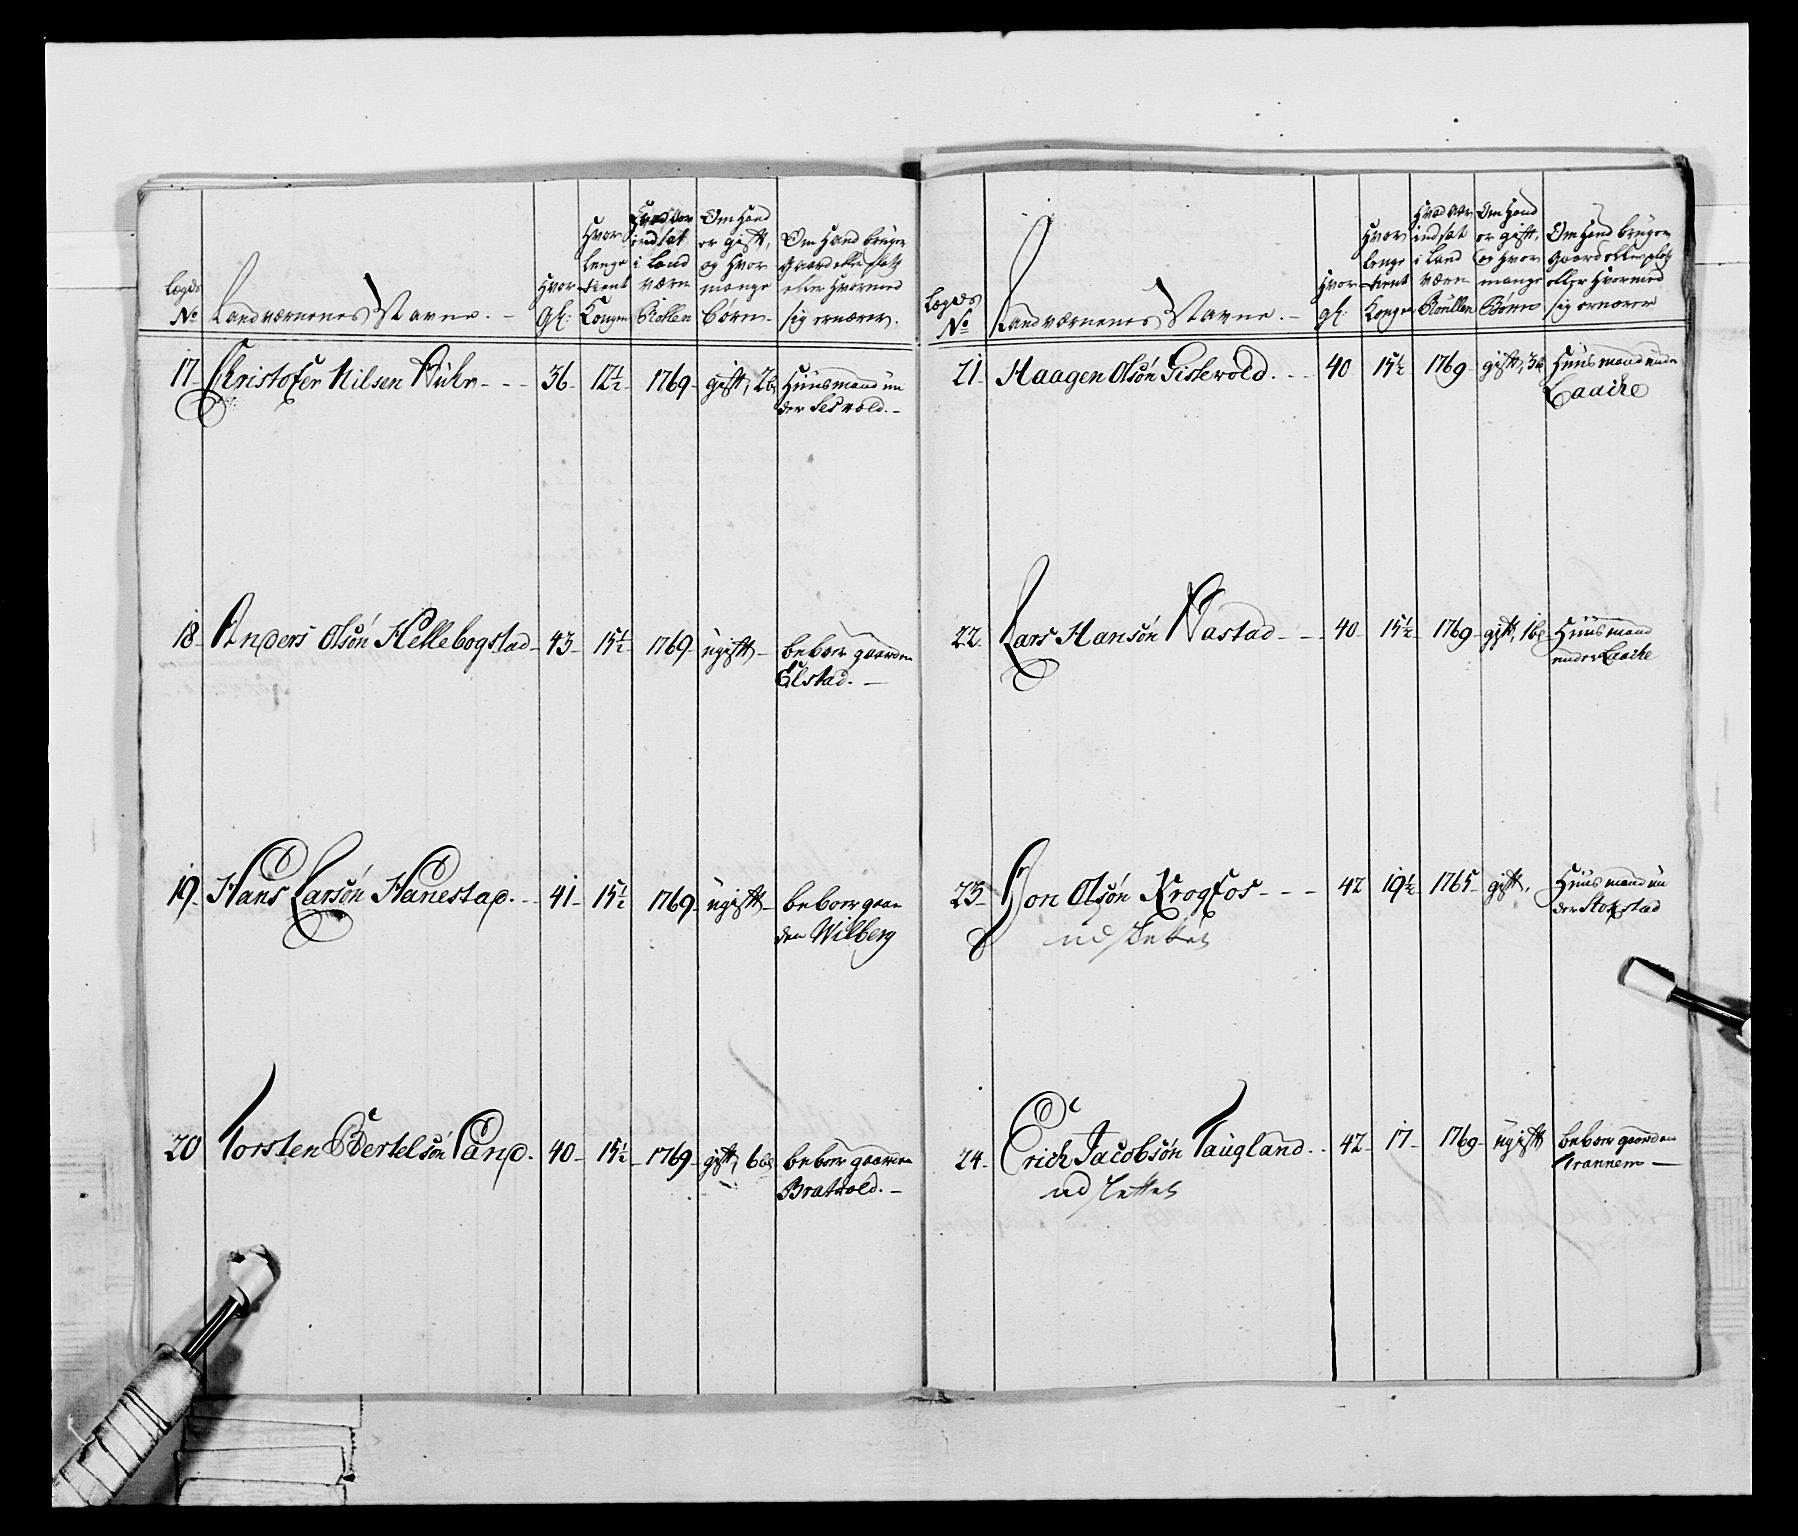 Lægds No
Landværnenes Navne.
Hvor gl:
Hvor lenge tient Kongen
Hvad aar indsat i Land værn Rollen
Om Hand er gift, og Hvor mange børn
Om Hand bruger Gaard eller platz eller Hvormed sig ernærer.
17 Christofer Nilsen - - - 36 12½ 1769 gift, 2b Huusmand un
der Sesvold.
18 Anders Olsøn Hellebogstad 43 15½ 1769 ugift beboer gaarden
Elstad.
19 Hans Larsøn Hanestad. - - 41 15½ 1769 ugift beboer gaar
den Wilberg
20 Torsten Bertelsøn Sand. 40 15½ 1769 gift, 6b beboer gaarden
Bratvold.
Lægds No
Landværnenes Navne.
Hvor gl:
Hvor lenge tient Kongen
Hvad aar indsat i Land værn Roullen
Om Hand er gift, og Hvor mange Børn
Om Hand bruger Gaard eller platz eller Hvormed sig ernærer
21 Haagen Olsøn Gislevold. - - 40 15½ 1769 gift, 3b Huusmand under
Laache
22 Lars Hansøn Nastad - - 40 15½ 1769 gift, 1b Huusmand
under Laache
23 Jon Olsøn Krogfos - - - 42 19½ 1765 gift, Huusmand un
der Stokstad
udslettet
24 Erich Jacobsøn Taugland. - 42 17 1769 ugift beboer gaarden
Trannem
udslettet